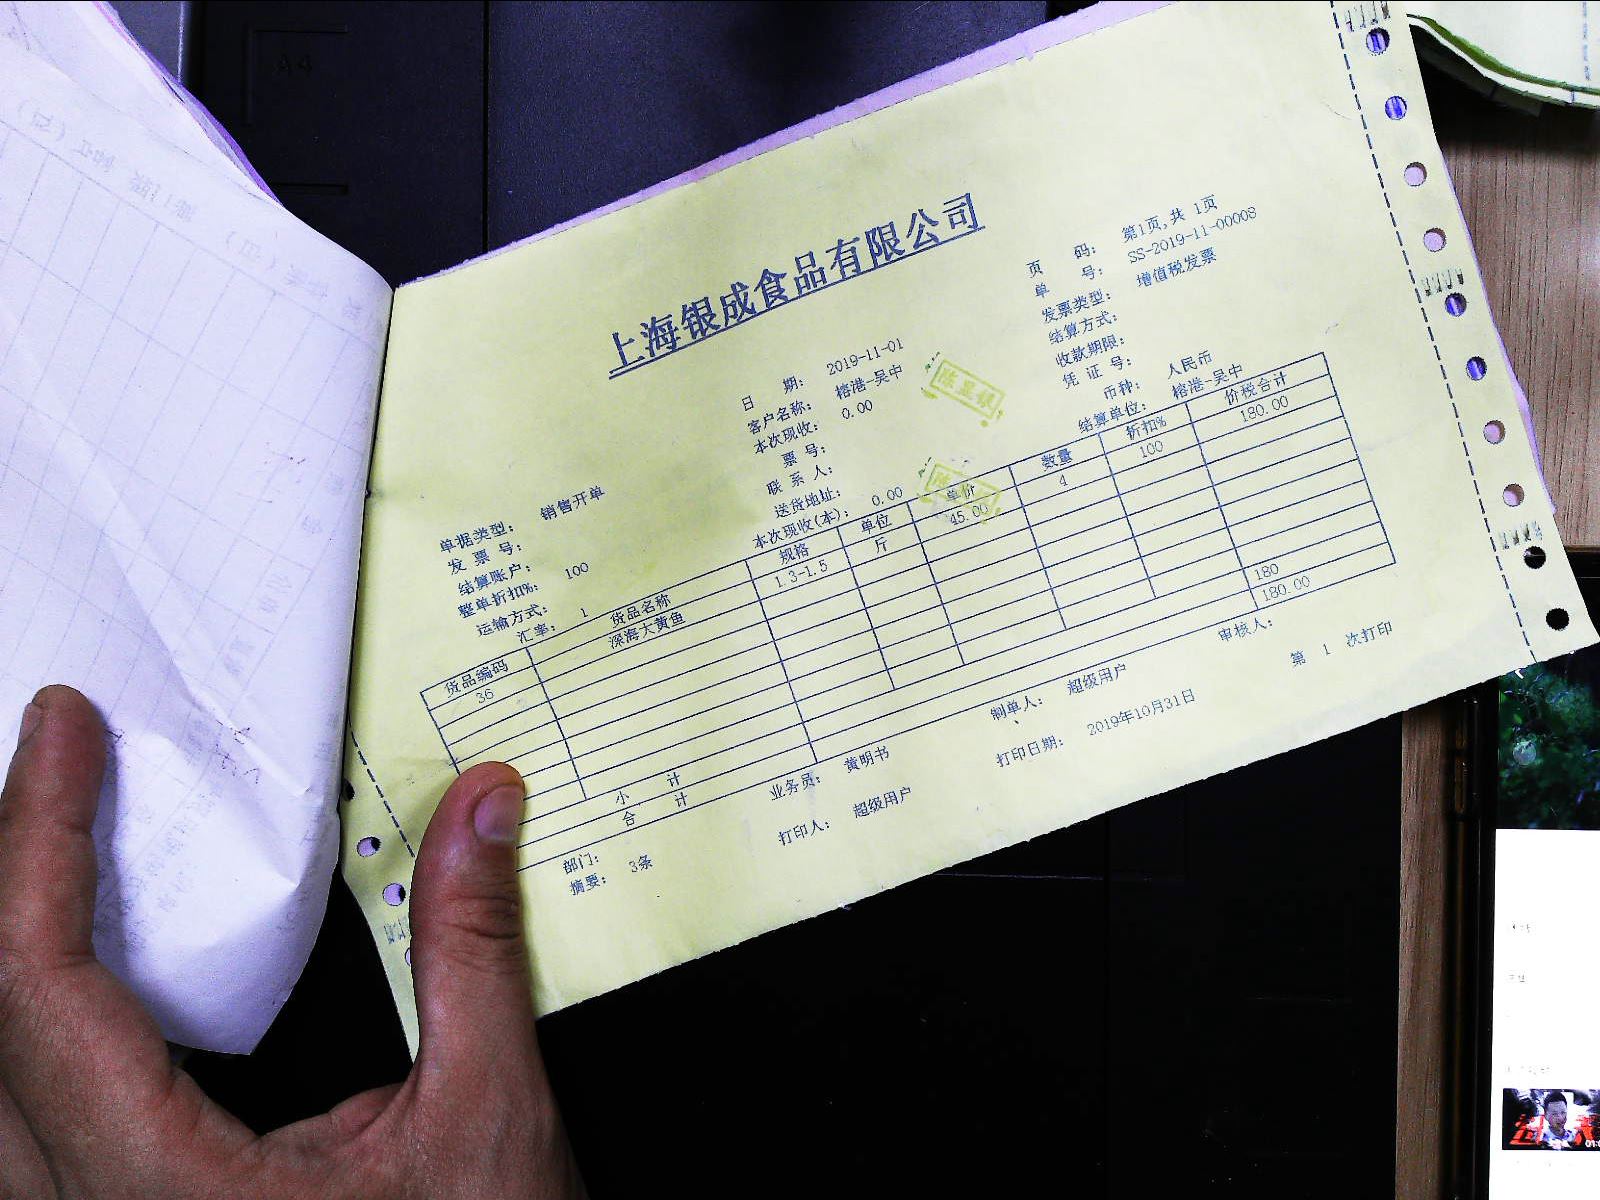 上海银成食品有限公司
页 码: 第1页,共 1页
单 号: SS-2019-11-00008
发票类型: 增值税发票
结算方式:
收款期限:
凭 证 号:
币种: 人民币
结算单位: 榕港-吴中
日 期: 2019-11-01
客户名称: 榕港-吴中
本次现收: 0.00
票 号:
联 系 人:
送货地址:
本次现收(本): 0.00
单据类型: 销售开单
发 票 号:
结算账户:
整单折扣%: 100
运输方式:
汇率: 1
货品编码 货品名称 规格 单位 单价 数量 折扣% 价税合计
36 深海大黄鱼 1.3-1.5 斤 45.00 4 100 180.00
小 计 180
合 计 180.00
部门: 业务员: 黄明书 制单人: 超级用户 审核人:
摘要: 3条 打印人: 超级用户 打印日期: 2019年10月31日 第 1 次打印
A4